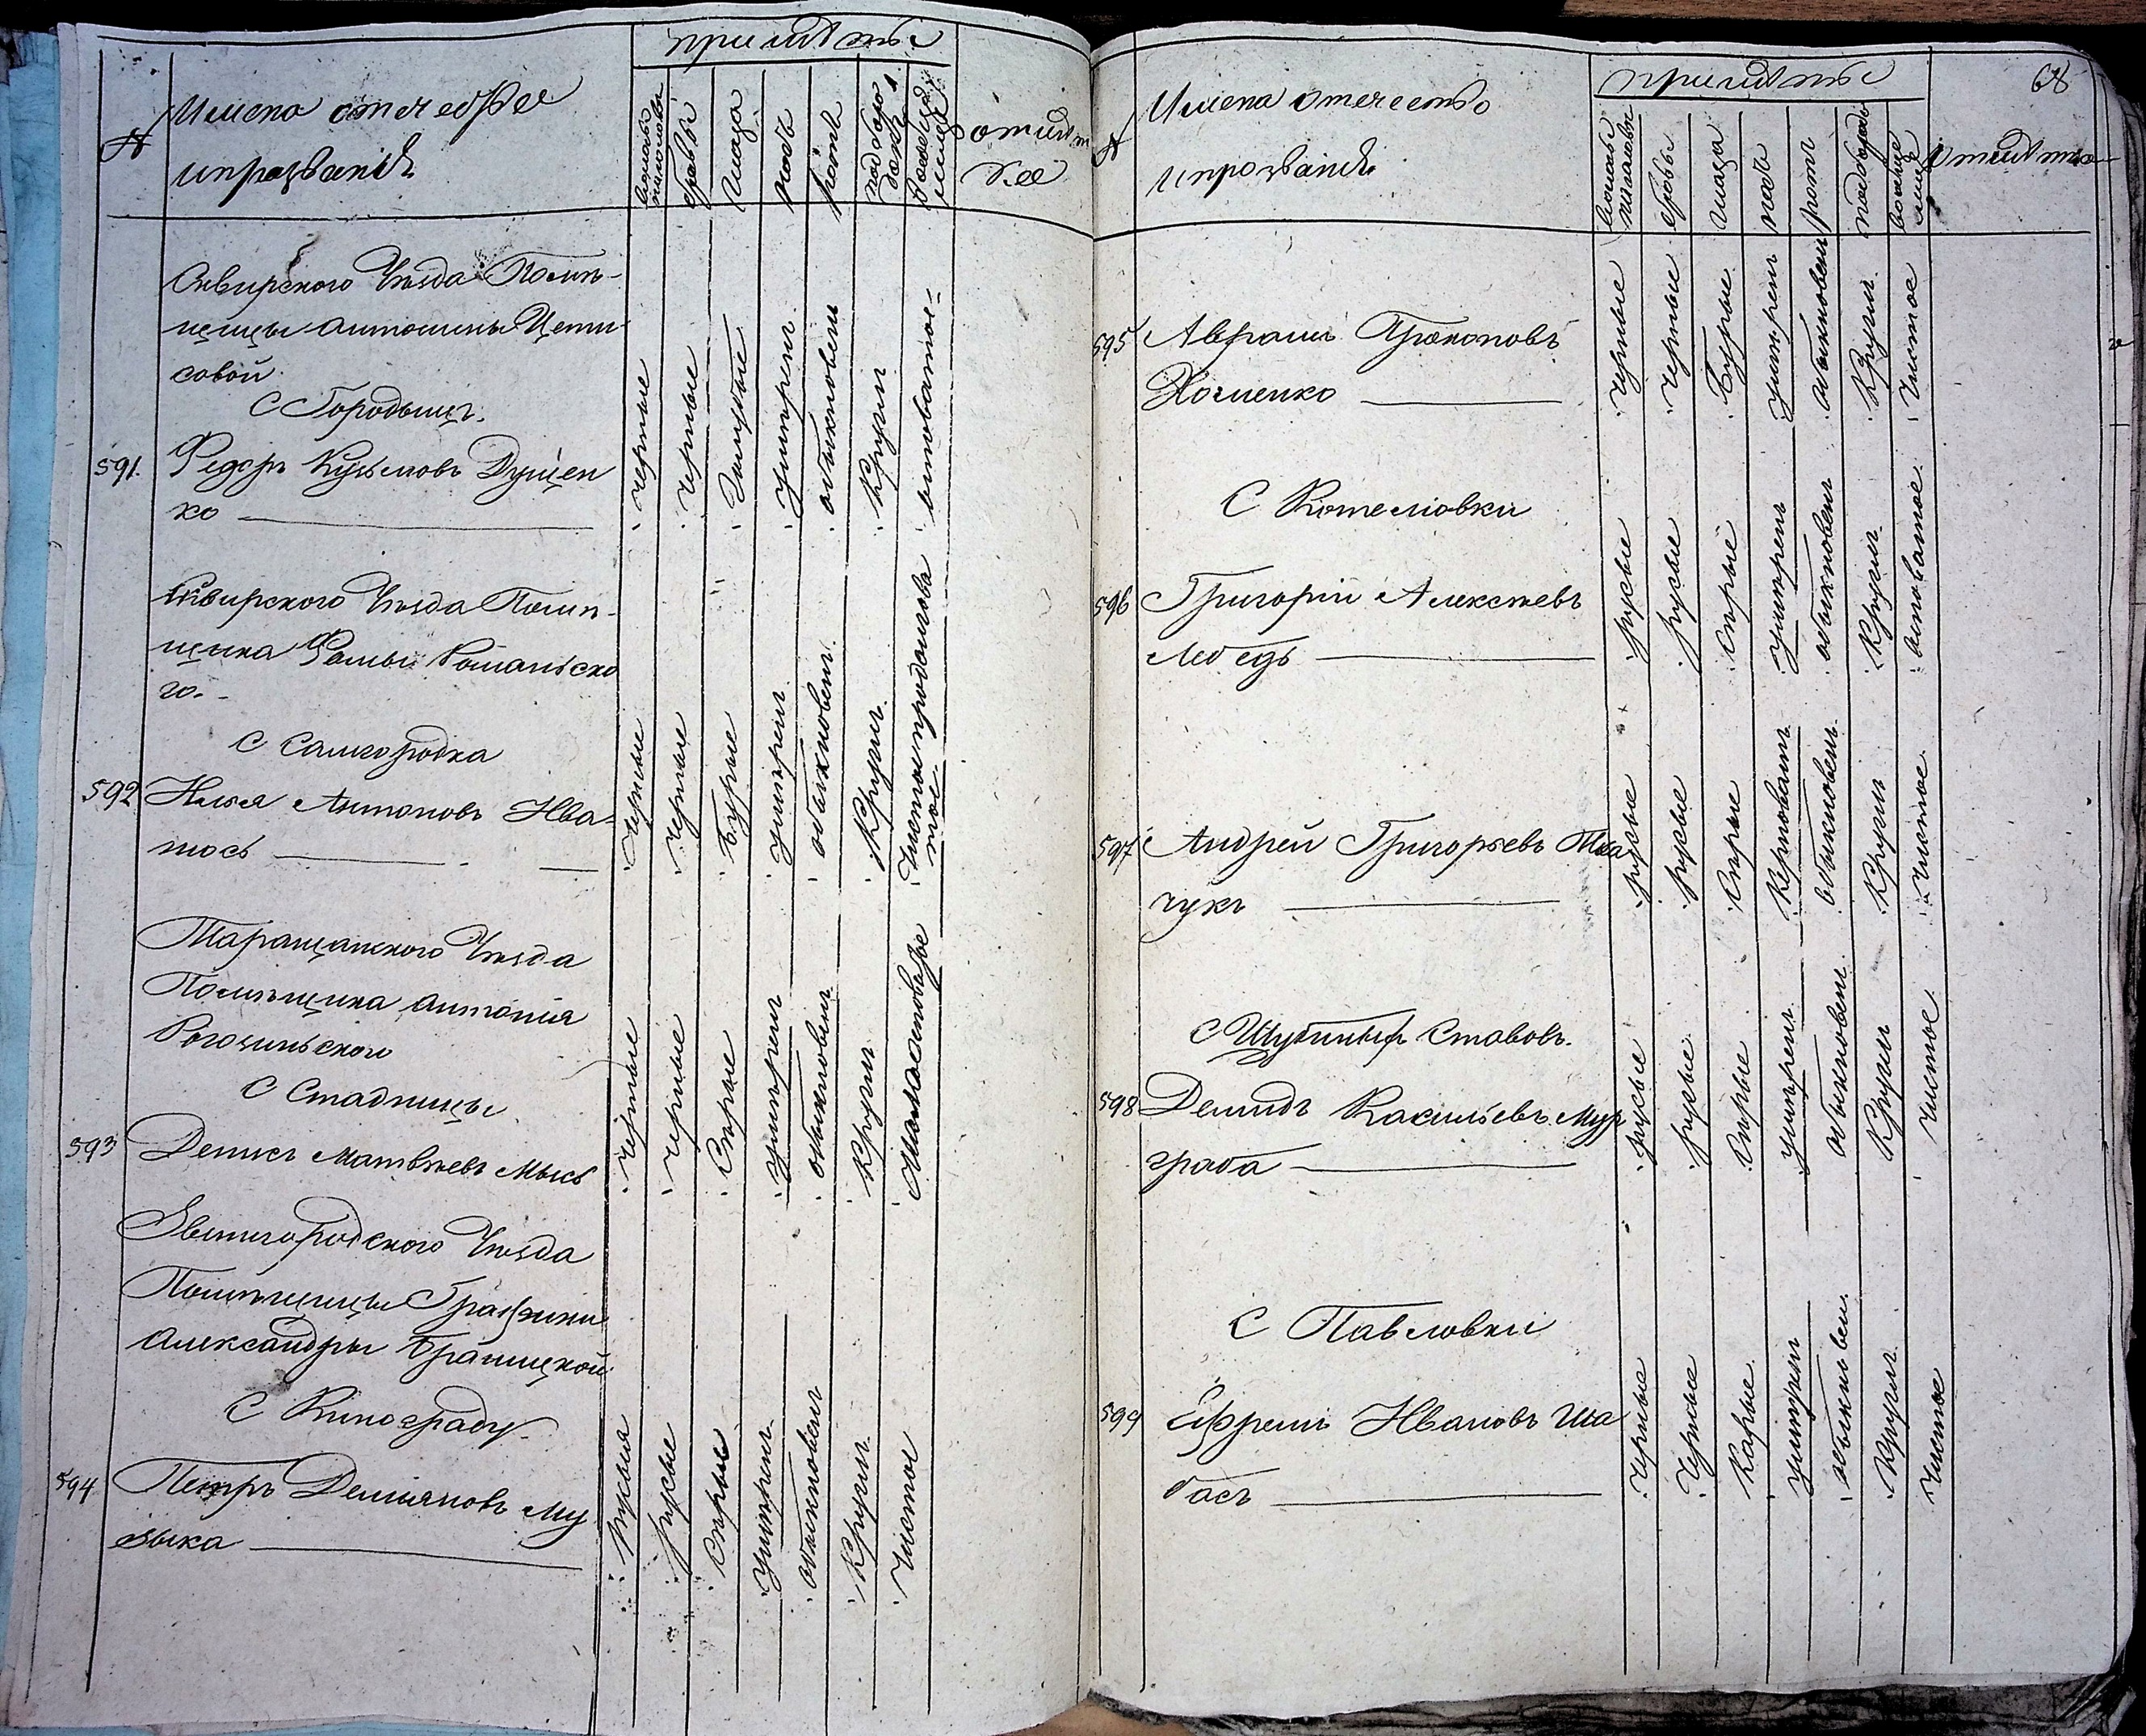 приметы
№
Имена отечествы
и прозванія
волосы на головы
бровы
глаза
носъ
ротъ
подборо докъ
вообще лице
отмет
Сквирского Уезда Поме-
щицы Антонины Цети
совой.
С Городыщъ.
591. Федоръ Кузьмовъ Дущен
ко
черные
черные
обыкновенъ
Кругл
Сквирского Уезда Поме-
щика Фомы Романьско
го.
С Самгородка
592 Илья Антоновъ Ива-
тось
черные
черные
Бурые
умѣренъ
обыкновенъ
Круглъ
Чистое продолгова
тое
Таращанского Уезда
Помѣщика Антонія
Рогозиньского
С Стадницы
593 Денисъ Матвѣевъ Мысь
черные
черные
Сѣрые
умѣренъ
обыкновенъ
Круглъ
Звенигородского Уезда
Помѣщицы Графини
Александры Браницкой
С Винограду
594 Петръ Демьяновъ Му
зыка
русыя
русые
Сѣрые
умѣренъ
обыкновенъ
Круглъ
Чистое
68
приметы
№
Имена отечество
и прозваніи
волосы на головы
бровы
глаза
носъ
ротъ
подбородо
вообще лице
отметки
595 Аврамъ Прокоповъ
Хоменко
черные
черные
Бурые
умѣренъ
обыкновенъ
Круглъ
Чистое
С Котеловки
596 Григорій Алексѣевъ
Лебедь
русые
русые
Сѣрые
умѣренъ
обыкновенъ
Круглъ
597 Андрей Григорьевъ Тка
чукъ
русые
русые
Сѣрые
обыкновенъ
Круглъ
Чистое
Ставовъ.
598 Демидъ Васильевъ Мур
града
русые
русые
Сѣрые
умѣренъ
обыкновенъ
Круглъ
Чистое
С Павловки
599 Ефремъ Ивановъ Ша
басъ
черные
черные
Карые
умѣренъ
обыкновен.
Круглъ
Чистое